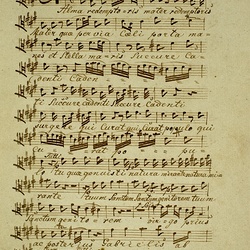 Alma redemptoris mater redemptoris
Mater quae pervia Coeli porta ma=
nes et Stella maris Succurre Ca=
denti Caden=
ti Succure cadenti Succure Cadenti
surgere qui Curat qui Curat populo qui
Cu rat po pu
lo tu quae genuisti natura mirante natura miran
te tuum Sanctum Sanctum genitorem tuum
Sanctum geni to rem virgo prius
ac posterius Gabrielis ab